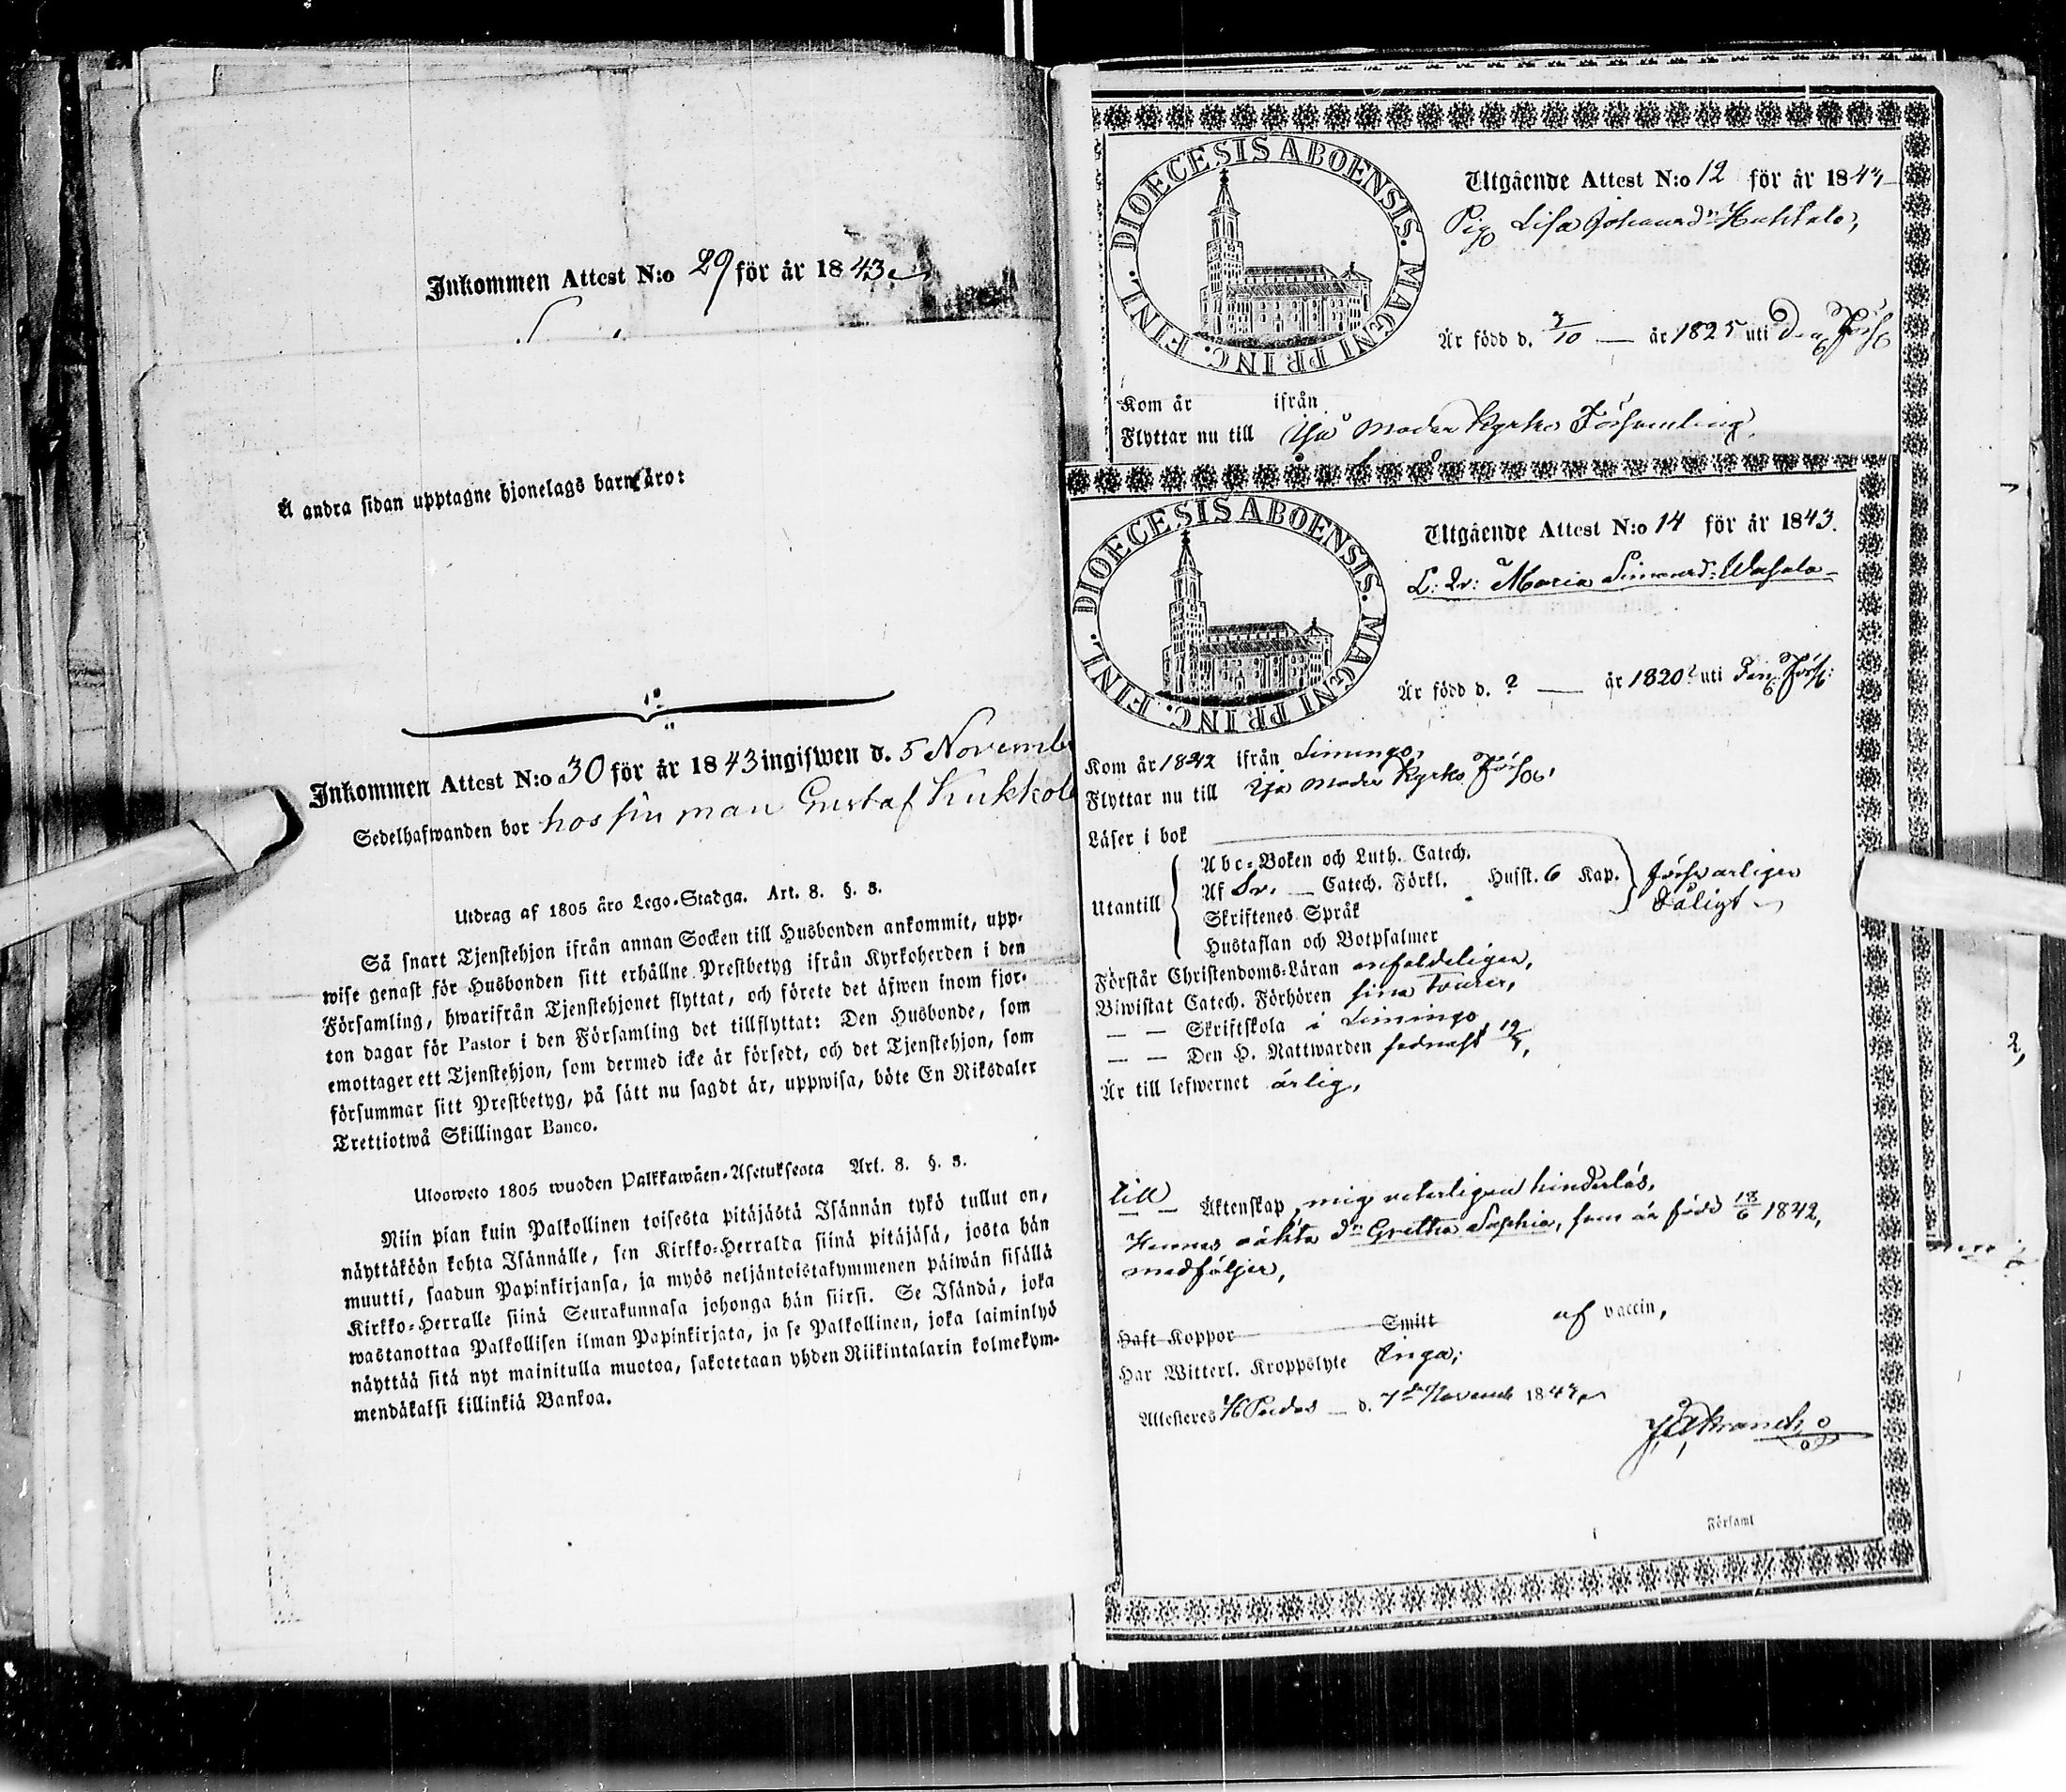 Inkommen Attest N:o 29 för år 1843
Å andra sidan upptagne hjonelags barn äro:
Inkommen Attest N:o 30 för år 1843 ingifwen d. 5 Novemb
Sedelhafwanden bor hos sin man Gustaf Kukkol
Utdrag af 1805 års Lego-Stadga. Art. 8. §. 3.
Så snart Tjenstehjon ifrån annan Socken till Husbonden ankommit, upp-
wise genast för Husbonden sitt erhållne Prestbetyg ifrån Kyrkoherden i den
Församling, hwarifrån Tjenstehjonet flyttat, och förete det äfwen inom fjor-
ton dagar för Pastor i den Församling det tillflyttat: Den Husbonde, som
emottager ett Tjenstehjon, som dermed icke är försedt, och det Tjenstehjon, som
försummar sitt Prestbetyg, på sätt nu sagdt är, uppwisa, böte En Riksdaler
Trettiotwå Skillingar Banco.
Ulosweto 1805 wuoden Palkkawäen-Asetuksesta Art. 8. §. 3.
Niin pian kuin Palkollinen toisesta pitäjästä Isännän tykö tullut on,
näyttäköön kohta Isännälle, sen Kirkko-Herralda siinä pitäjäsä, josta hän
muutti, saadun Papinkirjansa, ja myös neljäntoistakymmenen päiwän sisällä
Kirkko-Herralle siinä Seurakunnasa johonga hän siirsi. Se Isändä, joka
wastanottaa Palkollisen ilman Papinkirjata, ja se Palkollinen, joka laiminlyö
näyttää sitä nyt mainitulla muotoa, sakotetaan yhden Riikintalarin kolmekym-
mendäkaksi killinkiä Bankoa.
DIOECESIS ABOENSIS. MAGNI PRINC. FINL.
Utgående Attest N:o 12 för år 1843
Pig Lisa Johansdr Huhtala,
Är född d. 7/10 — år 1825 uti den Förs
Kom år ifrån
Flyttar nu till Ijo Moder Kyrko Församling
DIOECESIS ABOENSIS. MAGNI PRINC. FINL.
Utgående Attest N:o 14 för år 1843.
L: Qv: Maria Simonsd:
Är född d. ? — år 1820? uti den Förs:
Kom år 1842 ifrån Limingo,
Flyttar nu till Ijo Moder Kyrko Förs
Läser i bok
Abc-Boken och Luth. Catech.
Utantill Af Sv. — Catech. Förkl. Husst. 6 Kap. försvarligen
Skriftenes Språk dåligt
Hustaflan och Botpsalmer
Förstår Christendoms-Läran enfaldeligen,
Biwistat Catech. Förhören sina tourer,
— — Skriftskola i Limingo
— — Den H. Nattwarden sednast
Är till lefwernet ärlig,
till Äktenskap, mig veterligen hinderlös,
Hennes oäkta dr Gretha Sophia, som är född 18/6 1842,
medföljer,
Haft Koppor Smitt af vaccin,
Har Witterl. Kroppslyte inga;
Attesteres d. 7de November 1843
Församl
2,